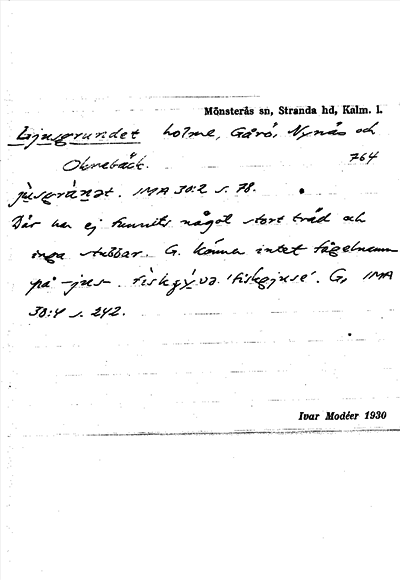 Mönsterås sn, Stranda hd, Kalm. l.
Ljusgrundet holme, Gårö, Nynäs och
Oknebäck. 764
jùsgrànət. IMA 30:2 s. 78.
Där har ej funnits något stort träd och
inga stubbar. G. känner intet fågelnamn
på -jus-. fiskgjuse'. G, IMA
30:4 s. 242.
Ivar Modéer 1930